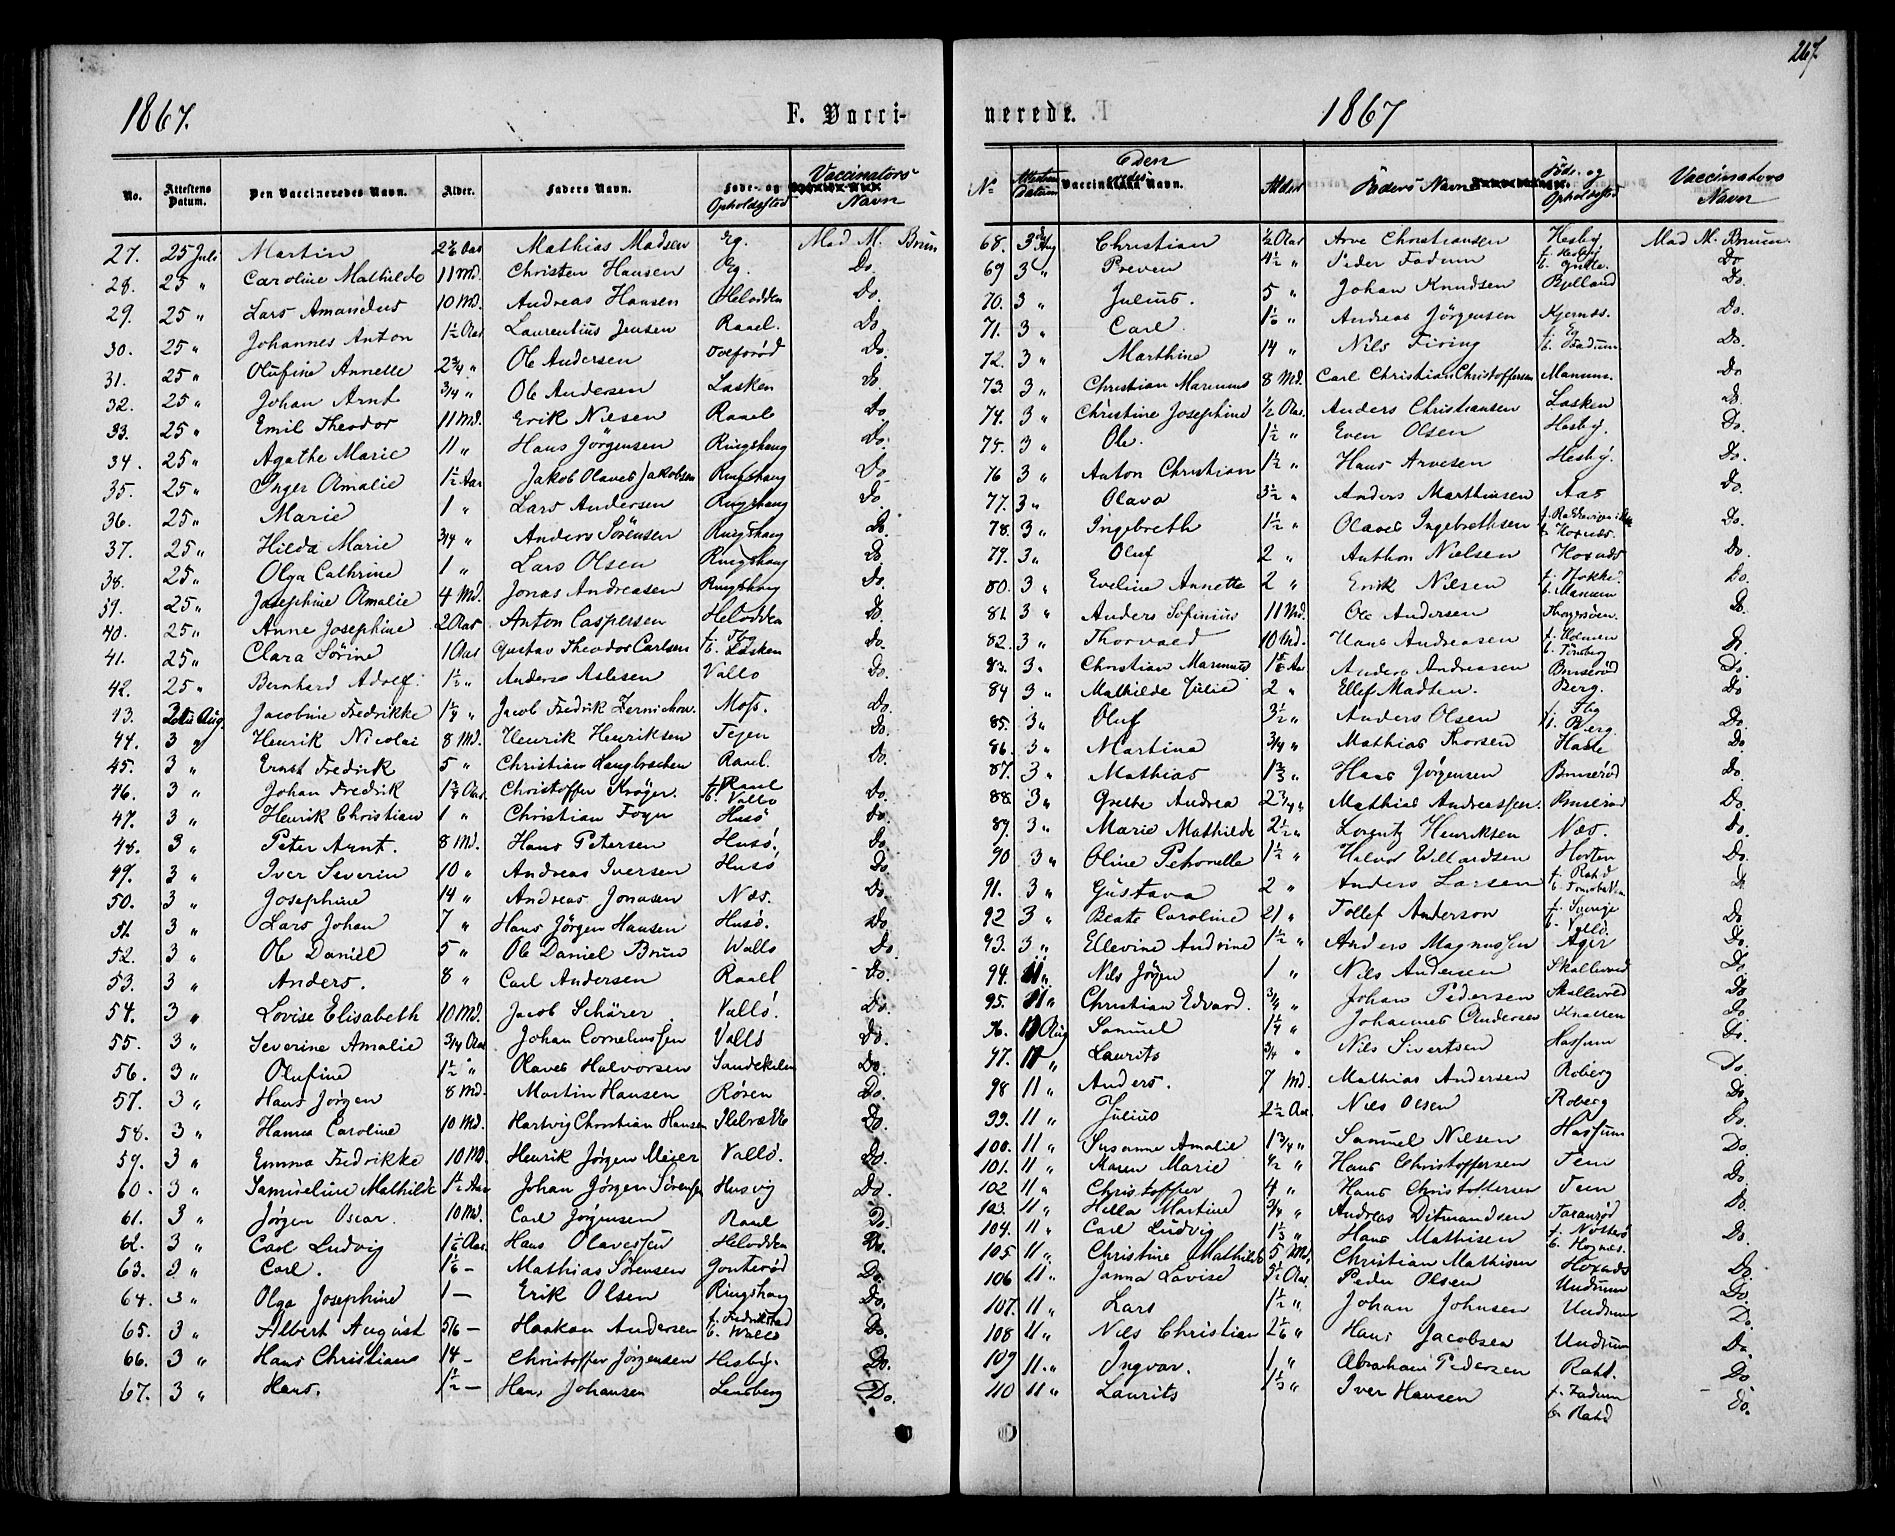 267.
1867. F. Vacci-
No. Attestens Datum. Den Vaccineredes Navn. Alder. Faders Navn. Føde- og Opholdssted Vaccinators Navn
27. 25 Juli Martin 2 Aar Mathias Madsen Eg. Mad M. Brun
28. 25 " Caroline Mathilde 11 Md. Christen Hansen Eg. Do.
29. 25 " Lars Amandus 10 Md. Andreas Hansen Helodden Do.
30. 25 " Johannes Anton 1½ Aar Laurentius Jensen Raael. Do.
31. 25 " Olufine Annette 2¾ " Ole Andersen Do.
32. 25 " Johan Arnt ¾ " Ole Andersen Lasken Do.
33. 25 " Emil Theodor 11 Md. Erik Nilsen Raael Do.
34. 25 " Agathe Marie 11 " Hans Jörgensen Ringshaug Do.
35. 25 " Inger Amalie 1½ Aar Jakob Olaves Jakobsen Ringshaug Do.
36. 25 " Marie 1 " Lars Andersen Ringshaug Do.
37. 25 " Hilda Marie ¾ " Anders Sörensen Ringshaug Do.
38. 25 " Olga Cathrine 1 " Lars Olsen Ringshaug Do.
39. 25 " Josephine Amalie 4 Md. Jonas Andreasen Ringshaug Do.
40. 25 " Anne Josephine 2 Aar Anton Caspersen Helodden Do.
41. 25 " Clara Sörine 1 Aar Gustav Theodor Carlsen f. Tbg b. Lasken Do.
42. 25 " Bernhard Adolf. 1½ " Anders Aslesen Vallö Do.
43. Aug Jacobine Fredrikke 1¼ " Jacob Fredrik Moss. Do.
44. 3 " Henrik Nicolai 8 Md. Henrik Henriksen Tejen Do.
45. 3 " Ernst Fredrik 5 " Christian Raael. Do.
46. 3 " Johan Fredrik 1¾ Aar Christoffer Kröger. f. Raael b. Vallö Do.
47. 3 " Henrik Christian 1 " Christian Foyn Husö Do.
48. 3 " Peter Arnt. 8 Md. Hans Petersen Husö. Do
49. 3 " Iver Severin 10 " Andreas Iversen Husö Do.
50. 3 " Josephine 14 " Andreas Jonasen Næs. Do.
51. 3 " Lars Johan 7 " Hans Jörgen Hansen Husö. Do.
52. 3 " Ole Daniel 5 " Ole Daniel Brun Wallö Do.
53. 3 " Anders. 8 " Carl Andersen Raael Do.
54. 3 " Lovise Elisabeth 10 Md. Jacob Schärer Vallö. Do.
55. 3 " Severine Amalie ¾ Aar Johan Corneliussen Vallö Do.
56. 3 " Olufine 1½ " Olaves Halvorsen Do.
57. 3 " Hans Jörgen 8 Md. Martin Hansen Røren Do.
58. 3 " Hanna Caroline 10 Md. Hartvig Christian Hansen Ilebrække Do.
59. 3 " Emma Fredrikke 10 Md. Henrik Jörgen Meier Vallö. Do.
60. 3 " Samueline Mathilde 1½ Aar Johan Jörgen Sörensen Husvig Do.
61. 3 " Jörgen Oscar. 10 Md. Carl Jörgensen Raael Do.
62. 3 " Carl Ludvig 1⅙ Aar. Hans Olavessen Helodden Do.
63. 3 " Carl. 1⅙ – Mathias Sörensen Gonterød Do.
64. 3 " Olga Josephine 1 – Erik Olsen Ringshaug Do.
65. 3 " Albert August 5/6 – Haakon Andersen f. Fredrikstad b. Wallö Do.
66. 3 " Hans Christian 14 – Christoffer Jörgensen Hesby. Do.
67. 3 " Hans. 1½ – Hans Johansen Lensberg Do.
nerede. 1867
No Attestens Datum Den Vaccineredes Navn. Alder Faders Navn Föde- og Opholdssted Vaccinators Navn
68. 3 Aug Christian ½ Aar Arve Christiansen Hesby. Mad M. Bruun.
69 3 " Preven 4½ " Peder Fadum f. Hesby b. Do
70. 3 " Julius. 5 " Johan Knudsen Bjelland Do.
71. 3 " Carl. 1⅙ " Andreas Jörgensen Kjernæs. Do.
72. 3 " Marthine 14 " Nils Firing f. Eg b. Fadum. Do.
73. 3 " Christian Marinius 8 Md. Carl Christian Christoffersen Manum. Do
74. 3 " Christine Josephine ½ Aar. Anders Christiansen Lasken Do.
75. 3 " Ole. 1½ " Even Olsen Hesby. Do.
76 3 " Anton Christian 1½ " Hans Arvesen Hesby. Do.
77. 3 " Olava 3½ " Anders Marthinsen Aas Do.
78. 3 " Ingebreth 1½ " Olaves Ingebrethsen b. Hoxnæs. Do.
79. 3 " Oluf 2 " Anthon Nielsen Hoxnæs Do.
80. 3 " Eveline Annette 2 " Erik Nilsen f. Hokke. b. Manum Do.
81 3 " Anders Sofinius 11 Md. Ole Andersen Do.
82. 3 " Thorvald 10 Md. Hans Andreasen f. Holmen b. Tönsberg Do.
83. 3 " Christian Marinus Aar Anders Andreasen Bruserød Do.
84 3 " Mathilde Julie 2 " Ellef Madsen. Berg. Do
85. 3 " Oluf 3½ " Anders Olsen f. Tbg b. Berg. Do.
86. 3 " Martina ¾ " Mathias Thorsen Hasle Do.
87. 3 " Mathias 1⅔ " Hans Jörgensen Bruserød Do.
88. 3 " Grethe Andrea 2¾ " Mathias Andreassen. Bruserød Do.
89. 3 " Marie Mathilde 2½ " Lorentz Henriksen Næs. Do.
90 3 " Oline Petronelle 1½ " Halvor Willardsen Horten Do.
91. 3 " Gustava 2 " Anders Larsen f. Rahd b. Do
92 3 " Beate Caroline 21 " Tollef Anderson f. Sverige b. Vallö. Do
93. 3 " Ellevine Andrine 1½ " Anders Magnussen Ager Do.
94. 11 " Nils Jörgen 1 " Nils Andersen Skallevold Do.
95. 11 " Christian Edvard. ¾ " Johan Pedersen Skallevold Do.
96. 11 Aug Samuel 1¼ " Johannes Andersen Knatten Do.
97. 11 " Laurits ¾ " Nils Sivertsen Hassum Do.
98 11 " Anders. 7 Md. Mathias Andersen Roberg Do.
99. 11 " Julius 2½ Aar. Nils Olsen Roberg Do.
100. 11 " Susanne Amalie 1¾ " Samuel Nilsen Hassum Do.
101. 11 " Maren Marie ½ " Hans Christoffersen Tem Do.
102 11 " Christoffer 4 " Hans Christoffersen Tem Do.
103. 11 " Hella Martine ¾ " Andreas Ditmandsen Taranrød Do.
104. 11 " Carl Ludvig 1⅓ " Hans Mathisen f. Nötterö b. Hoxnæs. Do.
105 11 " Christine Mathilde 5 Md. Christian Mathisen Hoxnæs Do.
106 11 " Janna Lovise 3½ Aar. Peder Olsen Undrum Do.
107. 11 " Lars 1½ " Johan Johnsen Undrum Do.
108 11 " Nils Christian 2⅙ " Hans Jacobsen Undrum Do.
109 11 " Ingvar. 1 " Abraham Pedersen Rahd. Do
110 11 " Laurits 1⅓ " Iver Hansen f. Fadum b. Rahd Do.